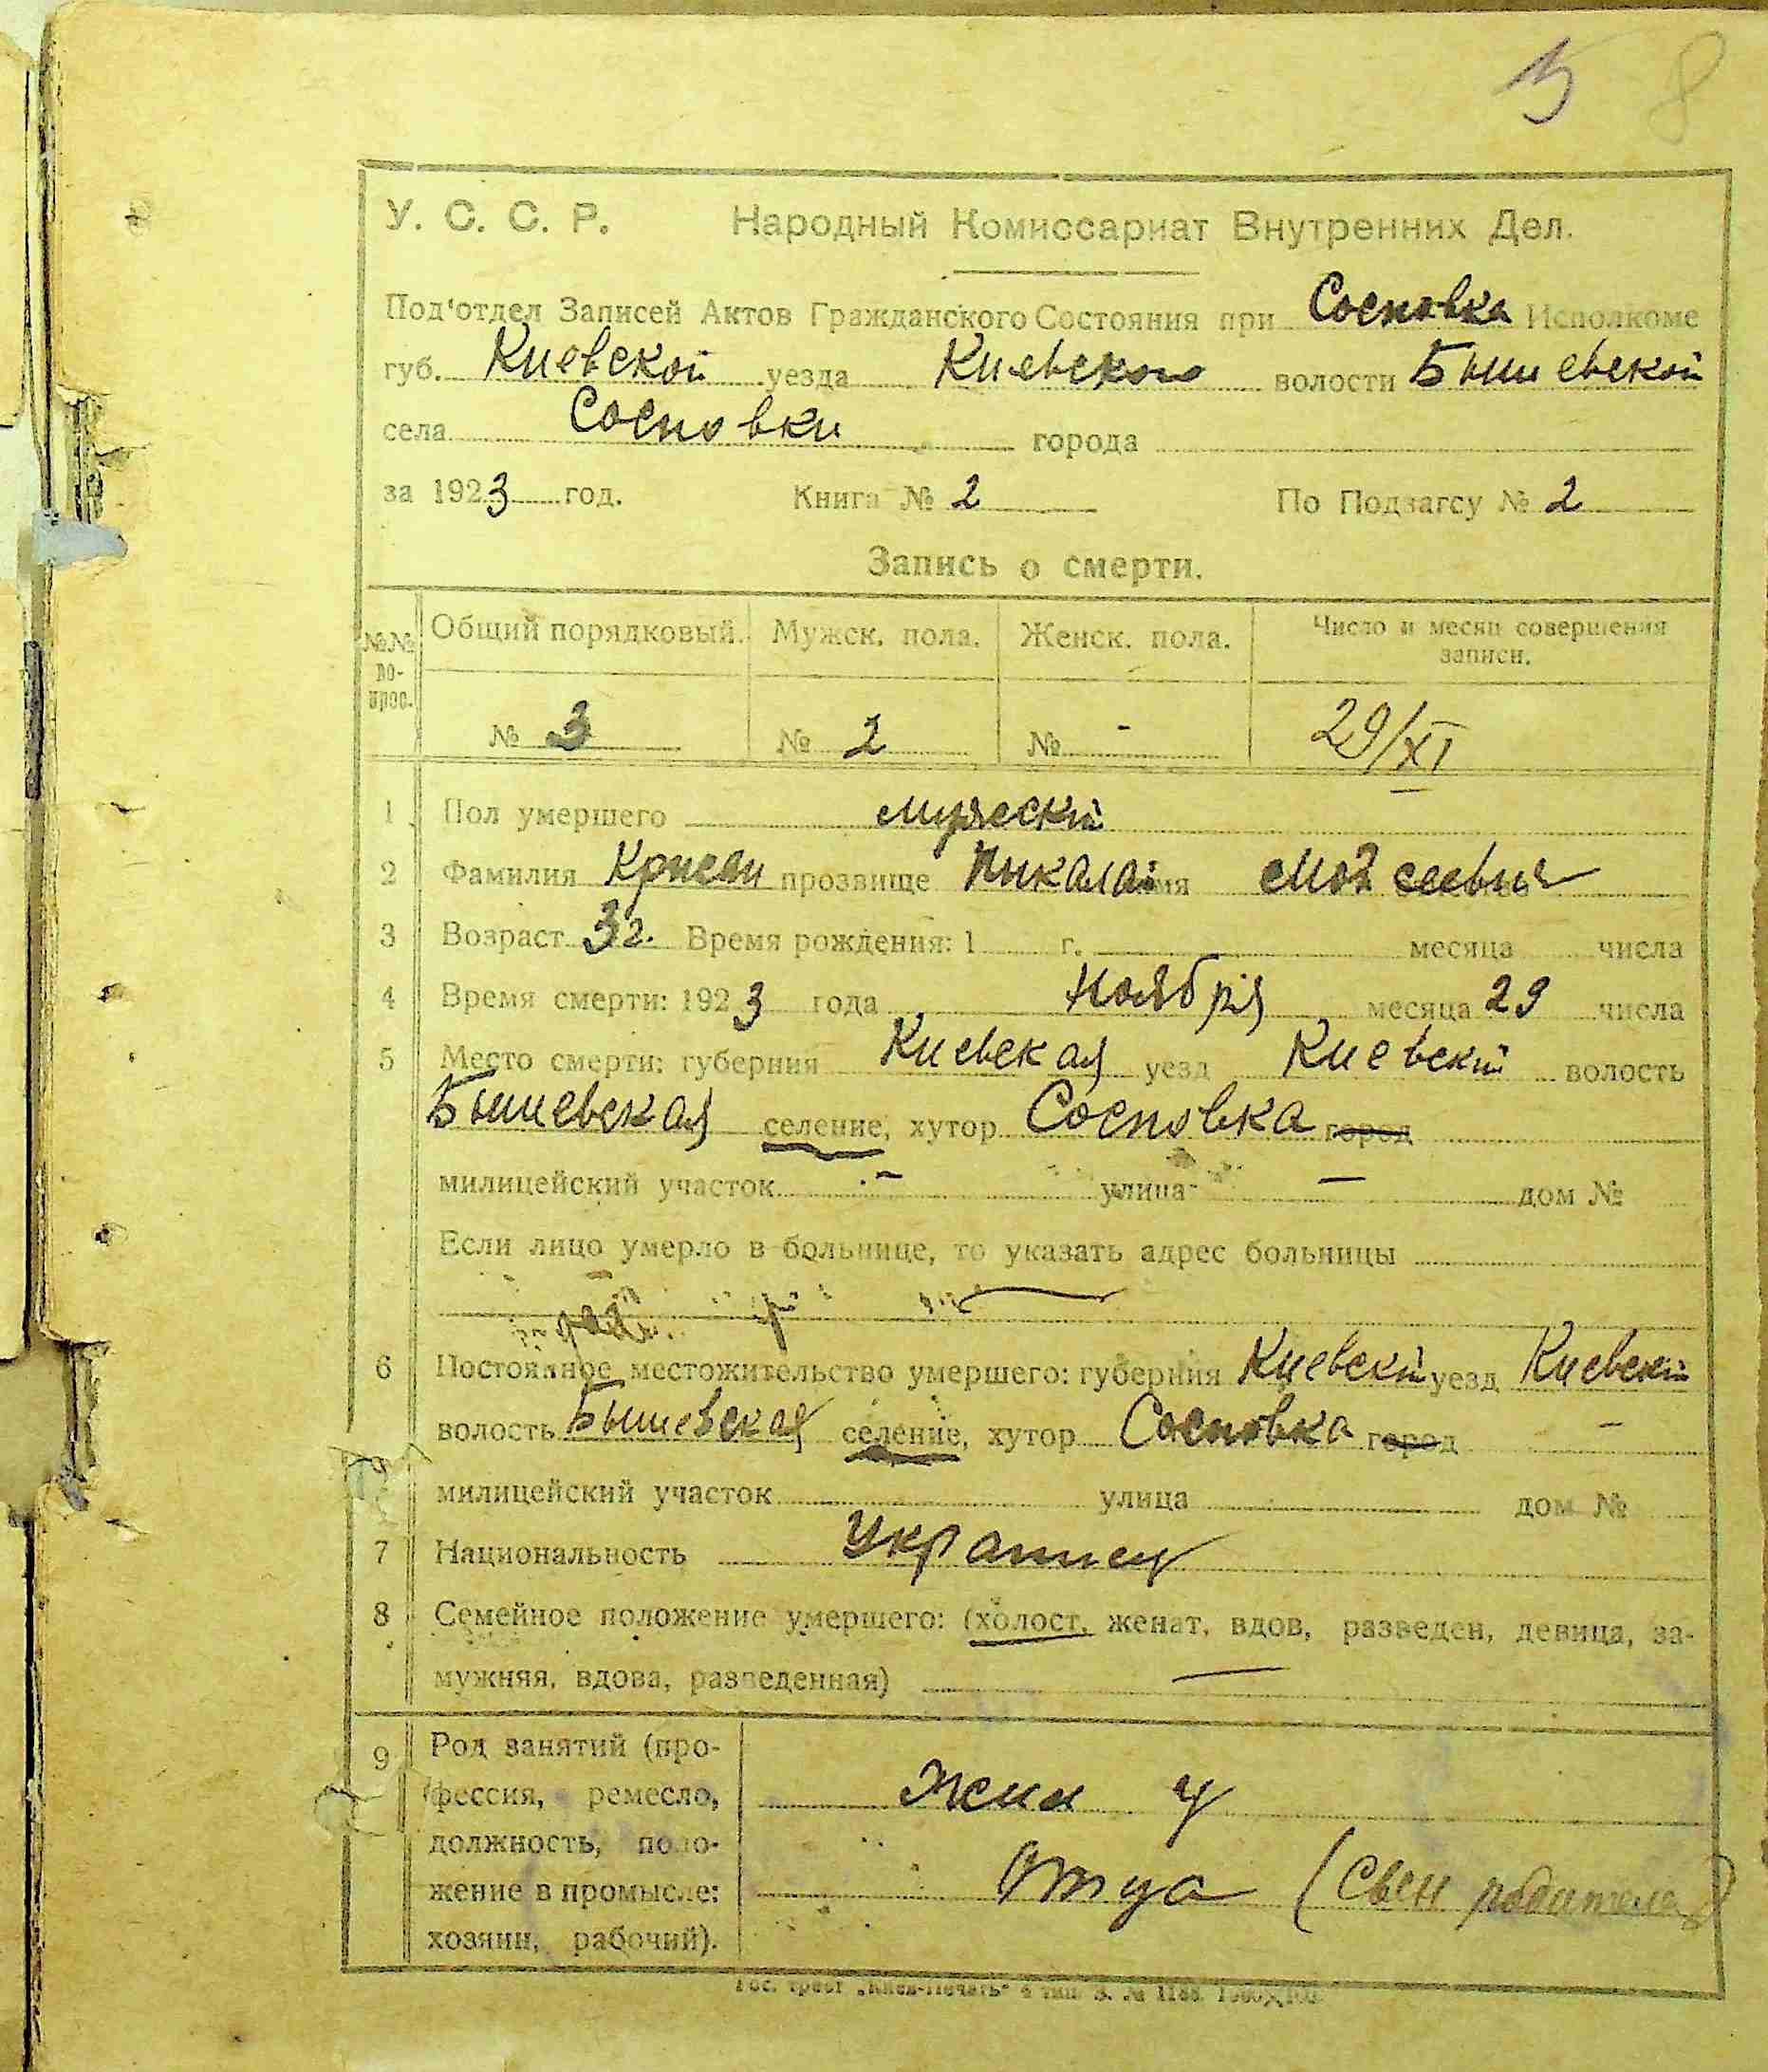 5 8
У. С. С. Р. Народный Комиссариат Внутренних Дел.
Под'отдел Записей Актов Гражданского Состояния при Сосновка Исполкоме
губ. Киевской уезда Киевского волости Бышевской
села Сосновки города
за 1923 год. Книга № 2 По Подзагсу № 2
Запись о смерти.
№№ во-прос. Общий порядковый. Мужск. пола. Женск. пола. Число и месяц совершения записи.
№ 3 № 2 № - 29/XI
1 Пол умершего мужеский
2 Фамилия прозвище Ныкалай имя Мойсеевич
3 Возраст 3 г. Время рождения: 1 г. месяца числа
4 Время смерти: 1923 года Ноября месяца 29 числа
5 Место смерти: губерния Киевская уезд Киевский волость
Бышевская селение, хутор Сосновка город
милицейский участок - улица — дом №
Если лицо умерло в больнице, то указать адрес больницы
—
6 Постоянное местожительство умершего: губерния Киевский уезд Киевский
волость Бышевская селение, хутор Сосновка город —
милицейский участок улица дом №
7 Национальность Украинец
8 Семейное положение умершего: (холост, женат, вдов, разведен, девица, за-
мужняя, вдова, разведенная) —
9 Род занятий (про-
фессия, ремесло, жил у
должность, поло-
жение в промысле: Отца (
хозяин, рабочий).